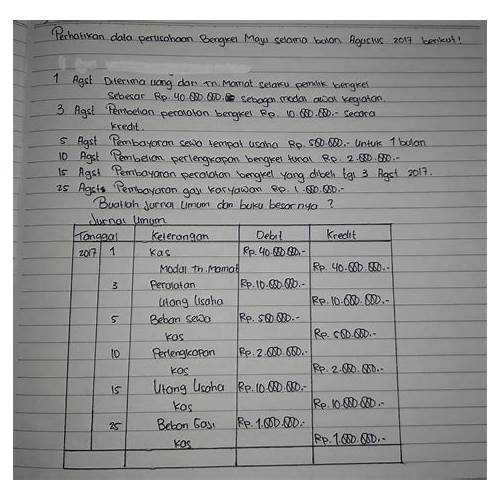 Perhatikan data perusahaan Bengkel Maju selama bulan Agustus 2017 berikut!
1 Agst Diterima uang dari Tn. Mamat selaku pemilik bengkel
Sebesar Rp. 40.000.000,- sebagai modal awal kegiatan.
3 Agst Pembelian peralatan bengkel Rp. 10.000.000,- secara
kredit.
5 Agst Pembayaran sewa tempat usaha Rp. 500.000,- untuk 1 bulan
10 Agst Pembelian perlengkapan bengkel tunai Rp. 2.000.000,-
15 Agst Pembayaran peralatan bengkel yang dibeli tgl 3 Agst 2017.
25 Agsts Pembayaran gaji karyawan Rp. 1.000.000,-
Buatlah Jurnal Umum dan buku besarnya?
Jurnal Umum
Tanggal Keterangan Debit Kredit
2017 1 Kas Rp. 40.000.000,-
Modal Tn. Mamat Rp. 40.000.000,-
3 Peralatan Rp. 10.000.000,-
Utang Usaha Rp. 10.000.000,-
5 Beban Sewa Rp. 500.000,-
Kas Rp. 500.000,-
10 Perlengkapan Rp. 2.000.000,-
Kas Rp. 2.000.000,-
15 Utang Usaha Rp. 10.000.000,-
Kas Rp. 10.000.000,-
25 Beban Gaji Rp. 1.000.000,-
Kas Rp. 1.000.000,-